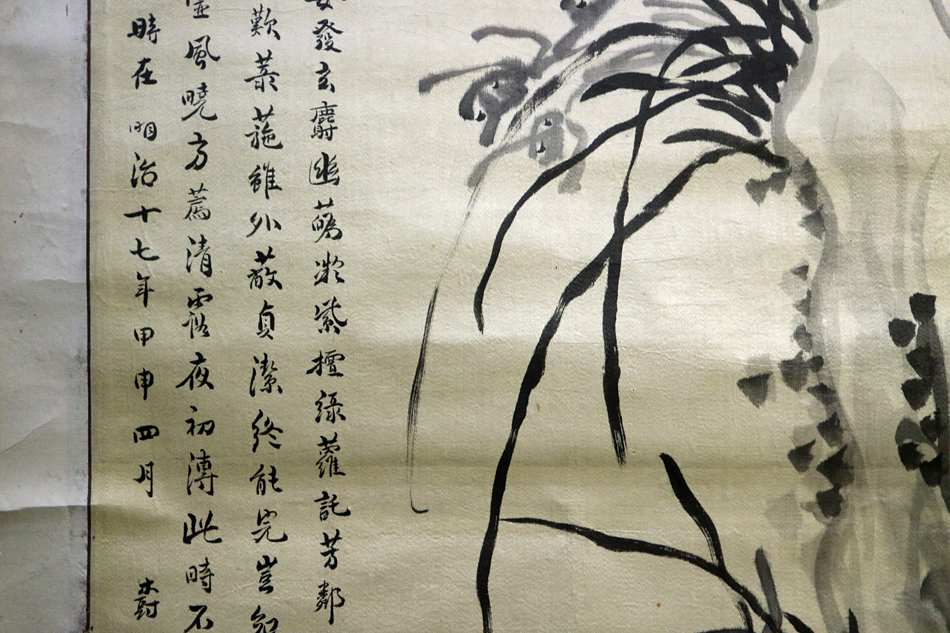 發玄麝幽凝紫檀綠蘿託芳鄰
歎菉葹雖外蔽貞潔終能完豈
虛風曉方薦清露夜初漙此時不
時在明治十七年甲申四月 樹